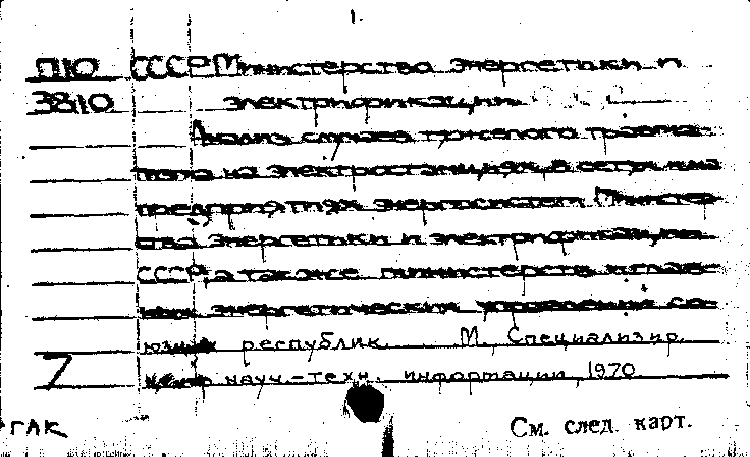 1.
П10 СССР Министерство энергетики и
3810 электрификации
Анализ случаев тяжелого травма-
тизма на электростанциях, в сетях и на
предприятиях энергосистем Министер-
ства энергетики и электрификации
СССР, а также министерств и глав-
ных энергетических управлений со-
юзных республик. М. Специализир.
7 центр науч.-техн. информации, 1970
ГАК
См. след. карт.